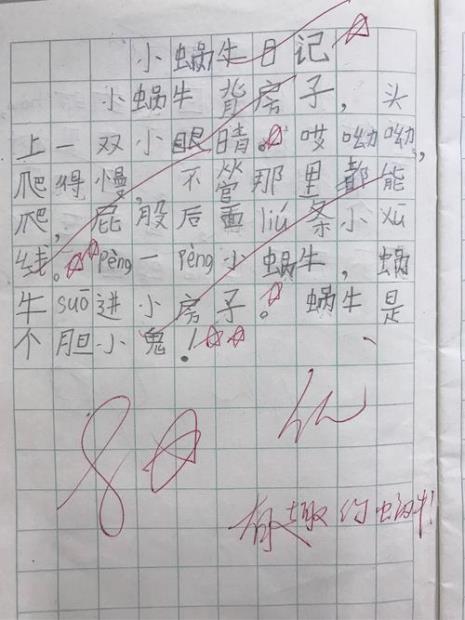 小蜗牛日记
小蜗牛背房子，头
上一双小眼晴。哎呦呦，
爬得慢，不管那里都能
爬，屁股后面liú条小xū
线。pèng一pèng小蜗牛，蜗
牛suō进小房子。蜗牛是
个胆小鬼！
8
优
有趣的蜗牛！